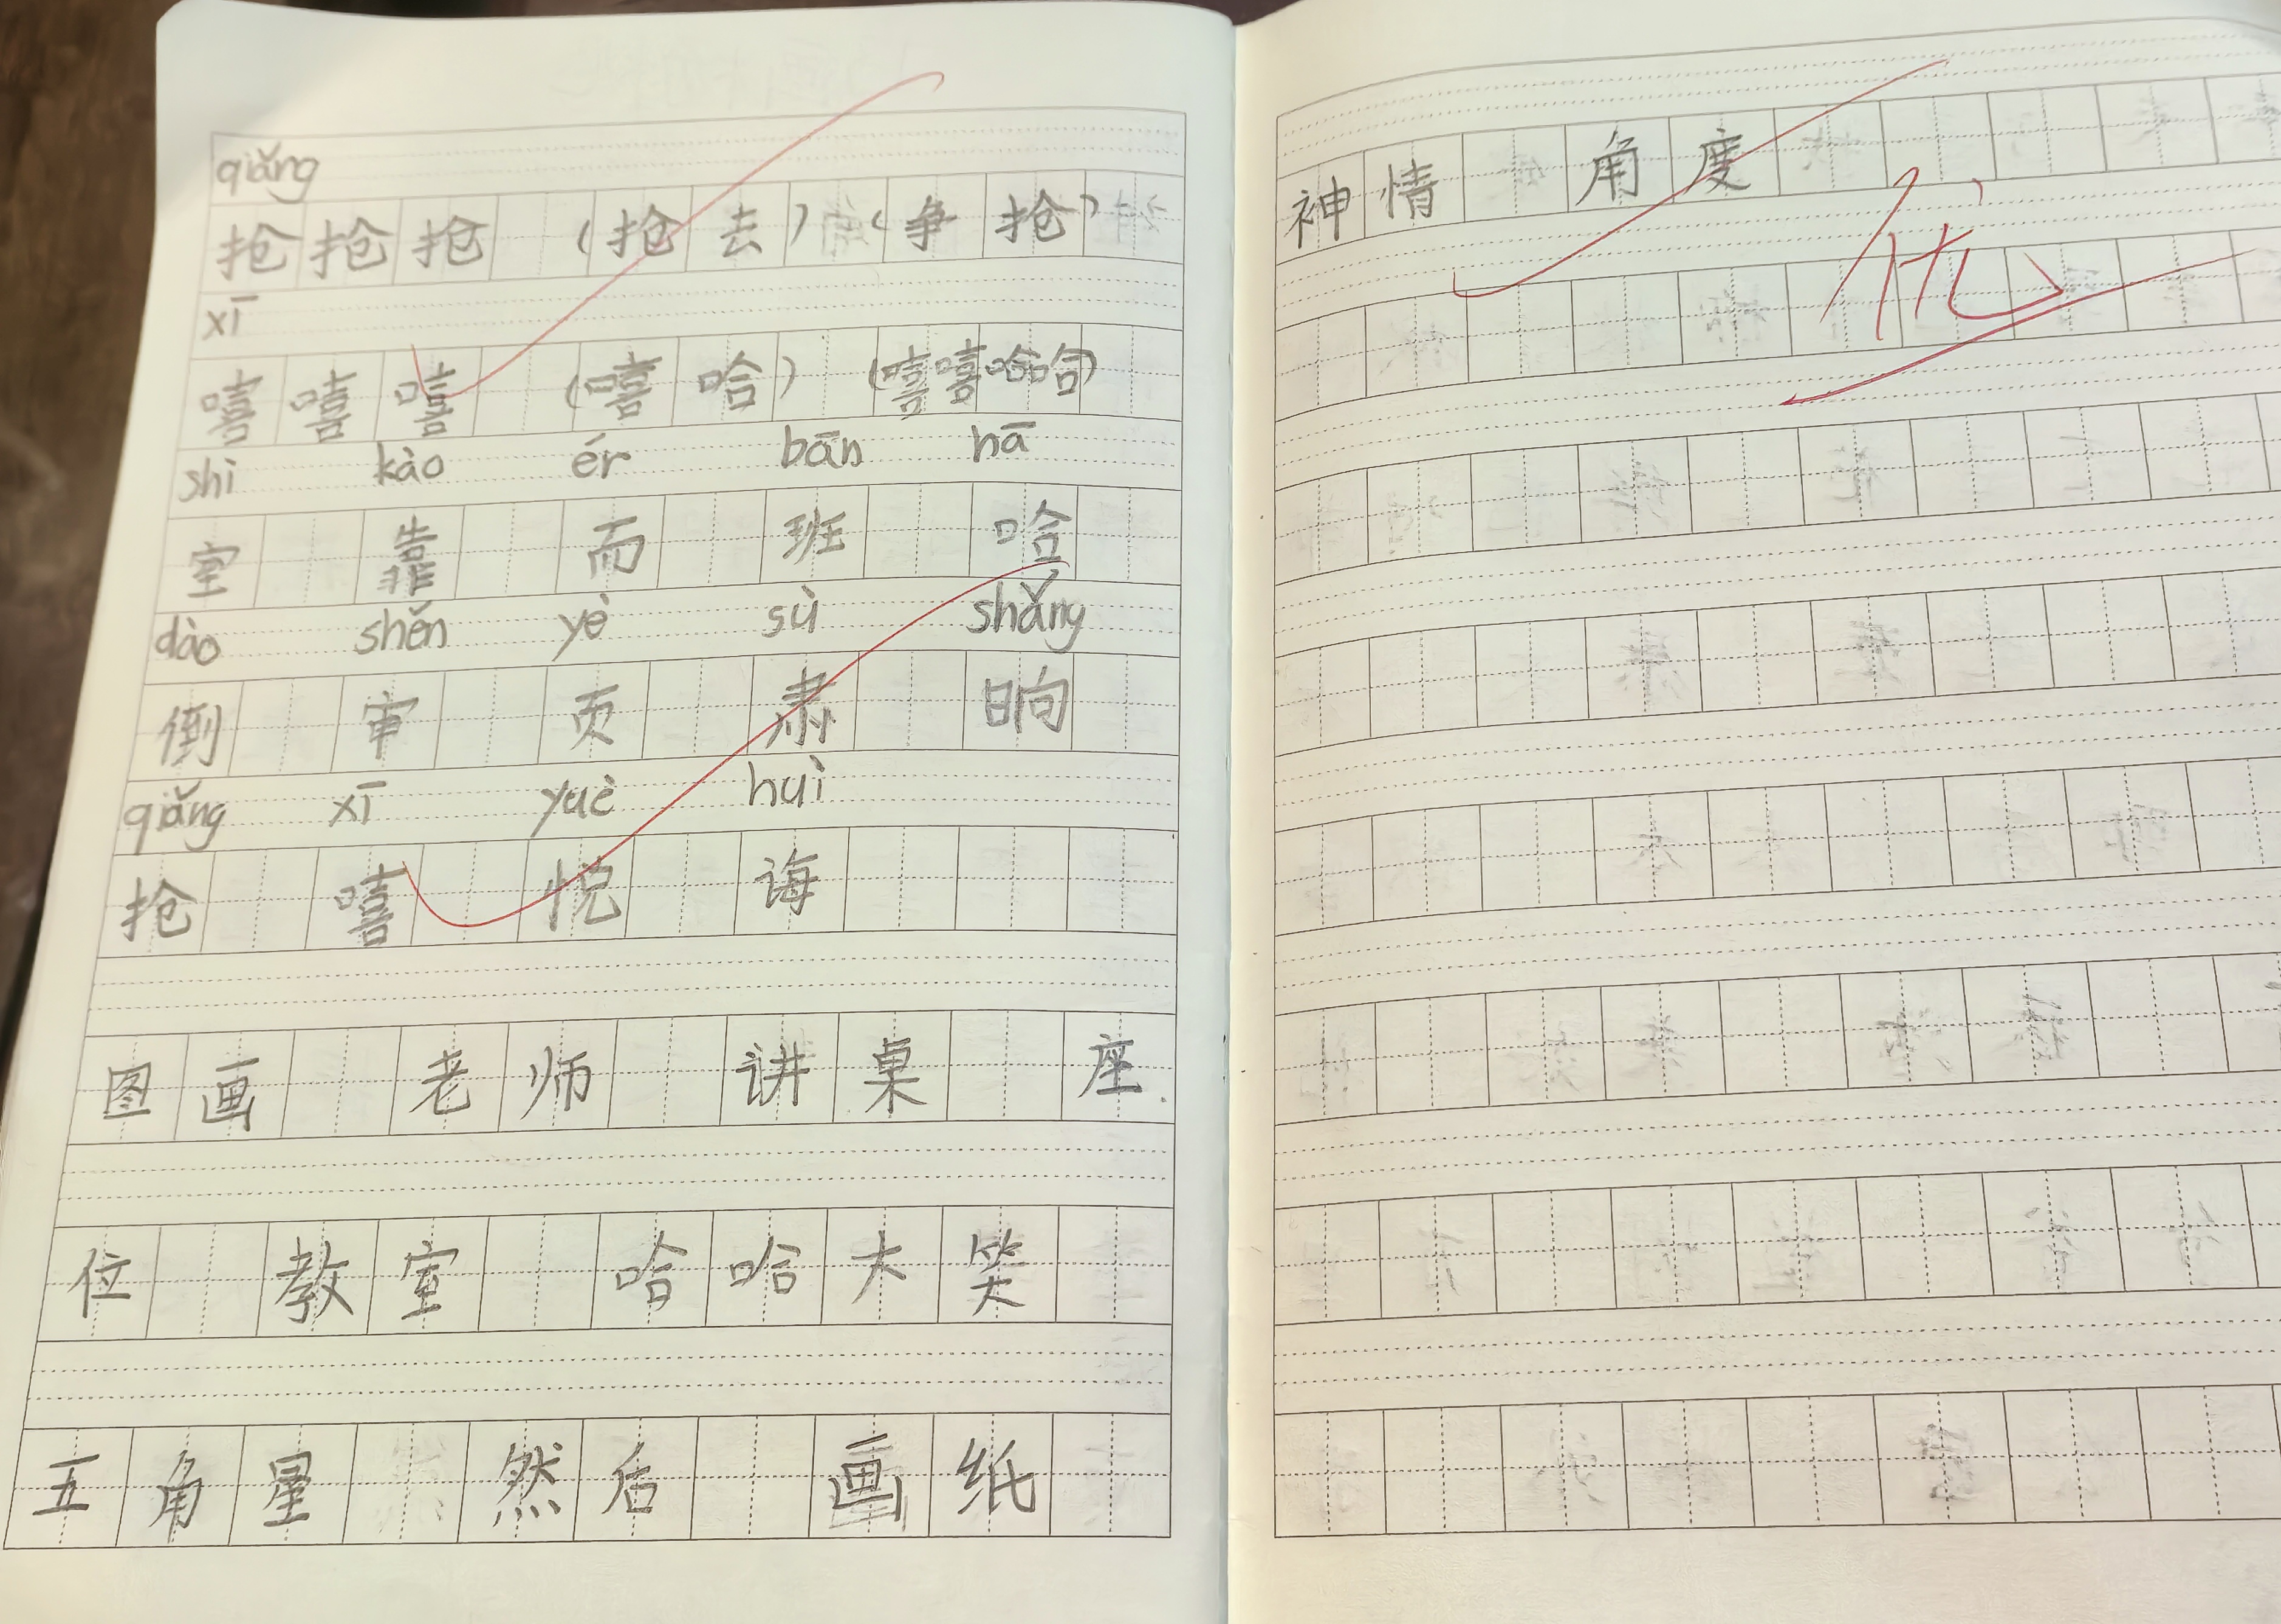 qiǎng
抢 抢 抢 (抢 去) (争 抢)
xī
嘻 嘻 嘻 (嘻 哈) (嘻嘻哈哈)
shì kào ér bān hā
室 靠 而 班 哈
dào shěn yè sù shǎng
倒 审 页 肃 晌
qiǎng xī yuè huì
抢 嘻 悦 诲
图 画 老 师 讲 桌 座
位 教 室 哈 哈 大 笑
五 角 星 然 后 画 纸
神 情 角 度
优